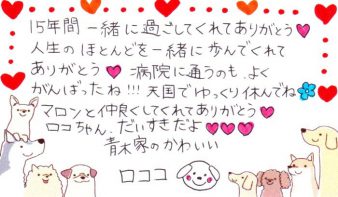 15年間 一緒に過ごしてくれてありがとう
人生の ほとんどを一緒に歩んでくれて
ありがとう 病院に通うのも、よく
がんばったね!!! 天国でゆっくり休んでね
マロンと仲良くしてくれてありがとう
ロコちゃん、だいすきだよ
青木家のかわいい
ロココ